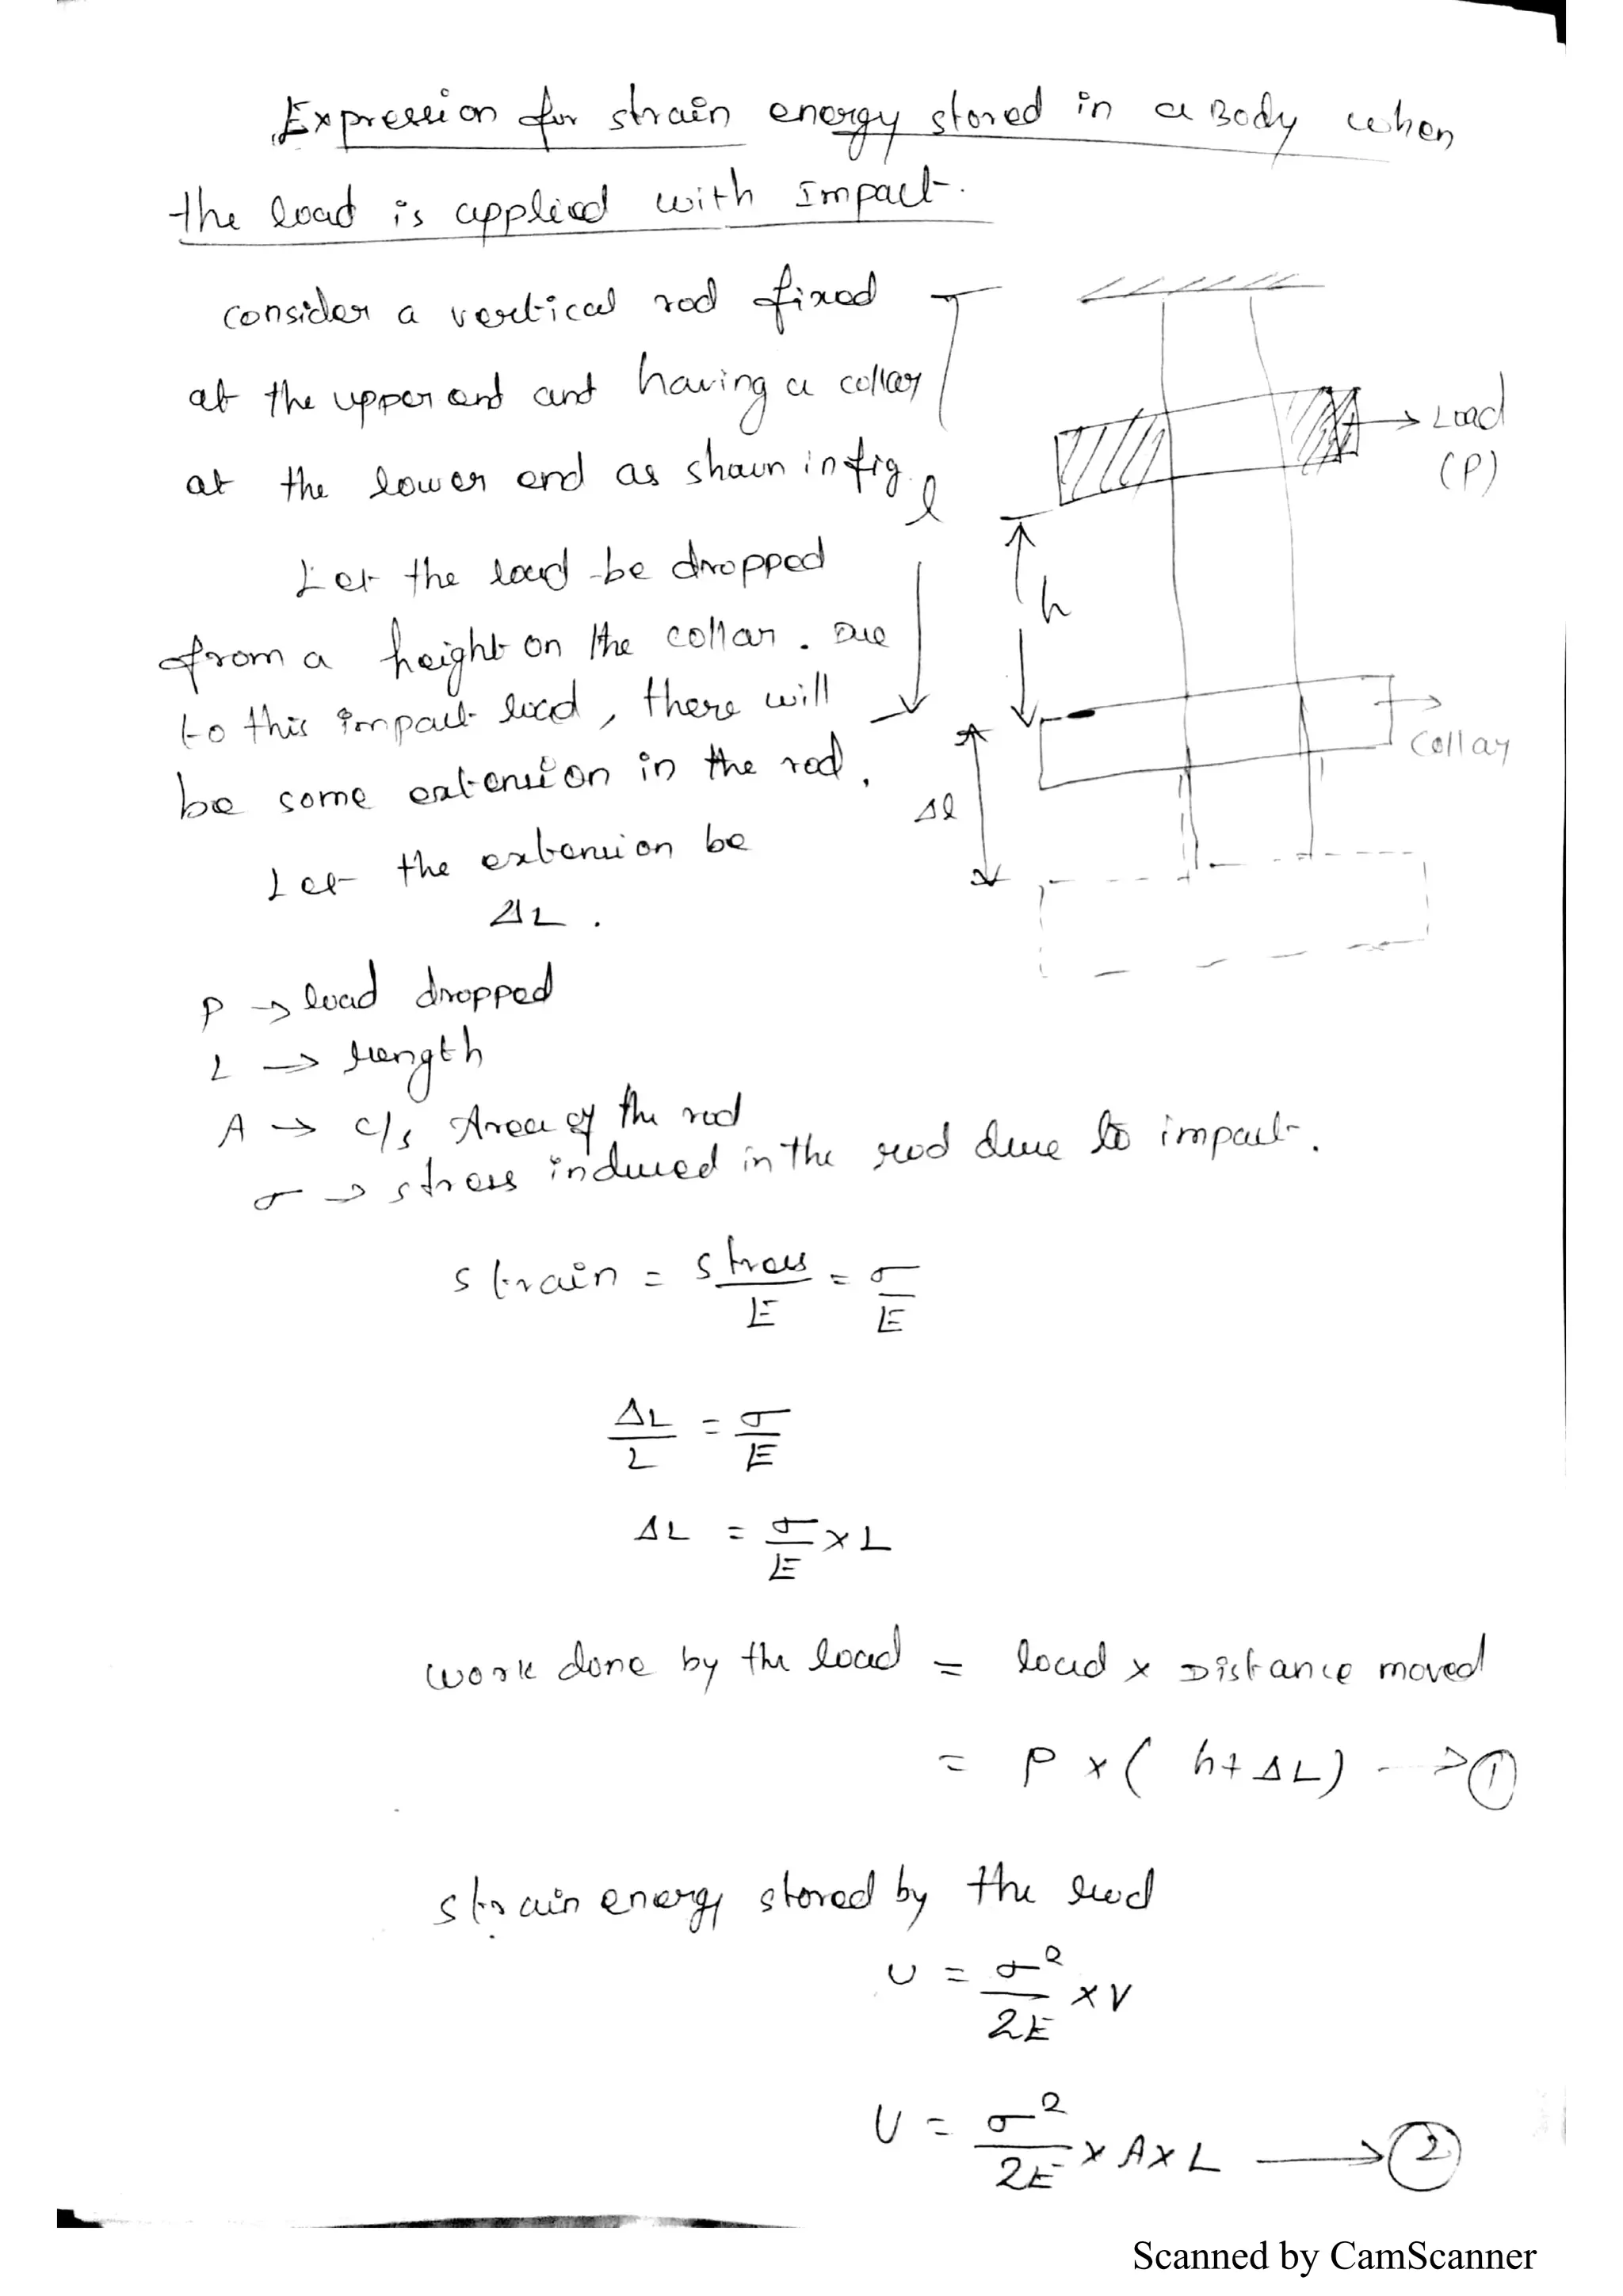 Expression for strain energy stored in a Body when
the load is applied with Impact.
consider a vertical rod fixed
at the upper end and having a collar
at the lower end as shawn in fig.
Let the load be dropped
from a height on the collar. Due
to this impact load, there will
be some extension in the rod.
Let the extension be
ΔL.
l
h
Δl
Load
(P)
Collar
P → load dropped
L → Length
A → c/s Area of the rod
σ → stress induced in the rod due to impact.
strain = stress/E = σ/E
ΔL/L = σ/E
ΔL = σ/E × L
work done by the load = load × Distance moved
= P × ( h + ΔL) --> ①
strain energy stored by the rod
U = σ²/2E × V
U = σ²/2E × A × L → ②
Scanned by CamScanner